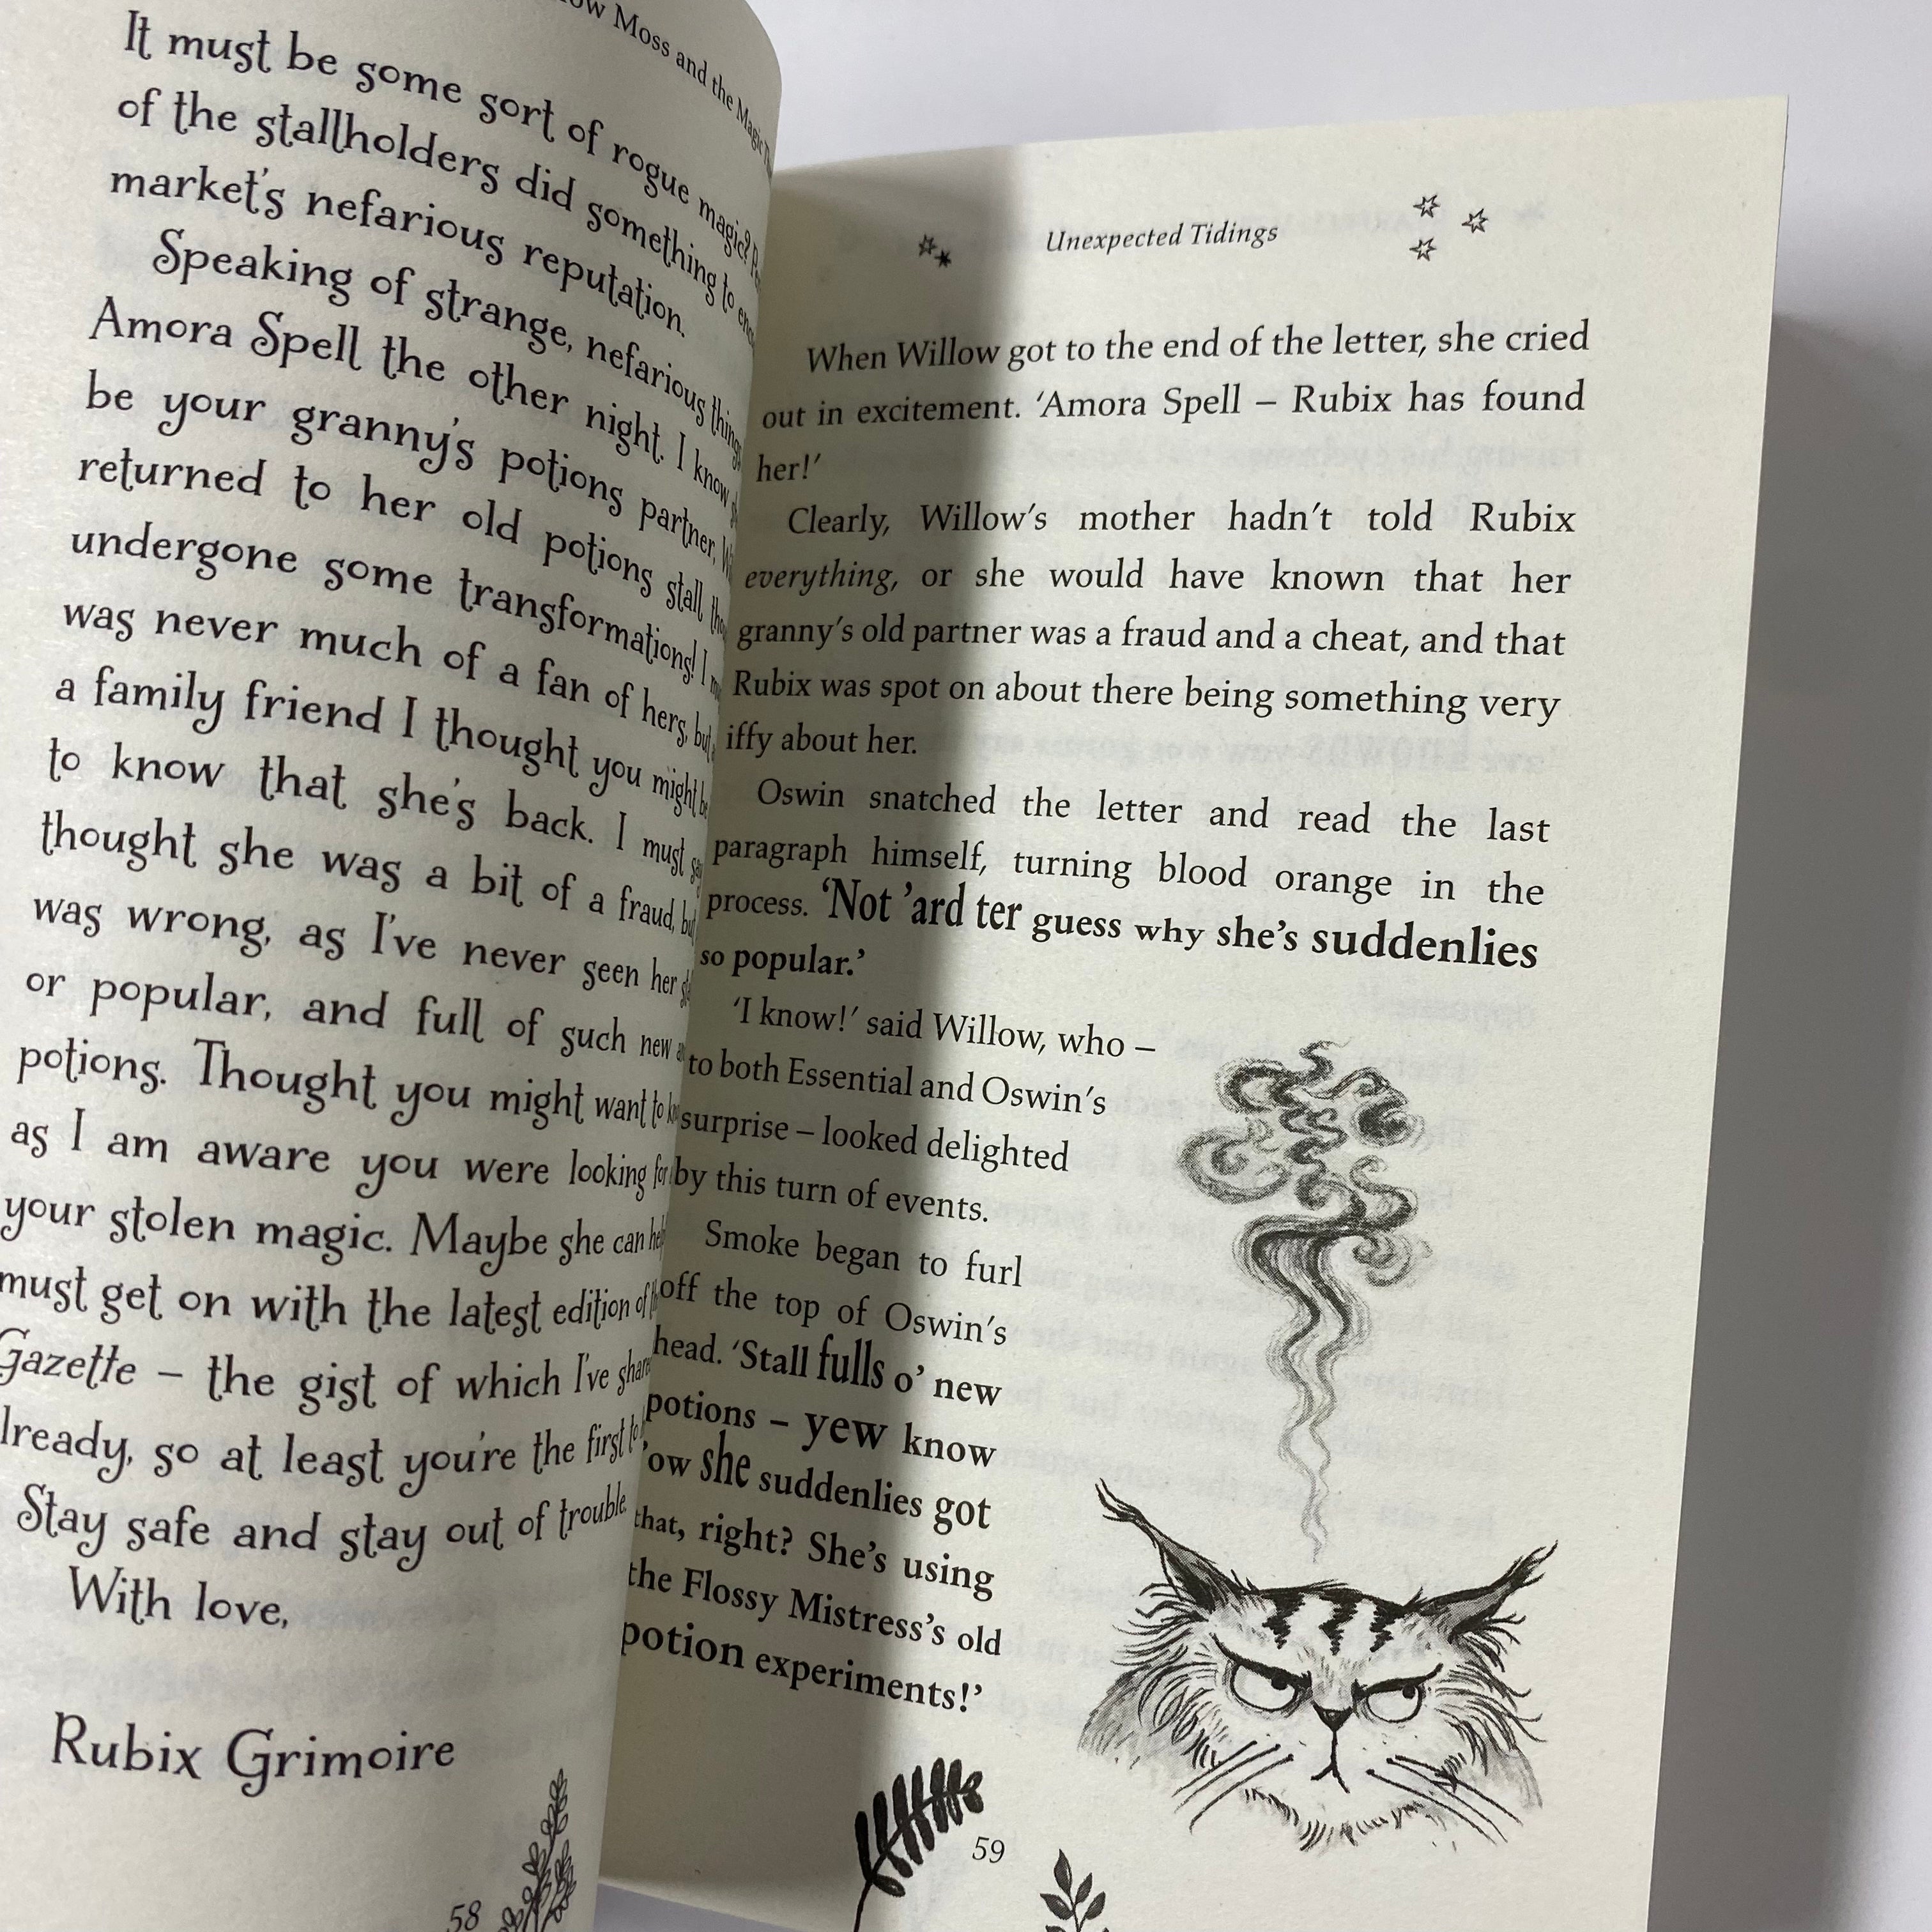 Moss and the Magic
It must be some sort of rogue magic?
of the stallholders did something to
market's nefarious reputation.
Speaking of strange, nefarious things
Amora Spell the other night. I know
be your granny's potions partner,
returned to her old potions stall
undergone some transformations! I
was never much of a fan of hers, but
a family friend I thought you might be
to know that she's back. I must
thought she was a bit of a fraud,
was wrong, as I've never seen her
or popular, and full of such new
potions. Thought you might want to
as I am aware you were looking for
your stolen magic. Maybe she can
must get on with the latest edition of
Gazette – the gist of which I've
lready, so at least you're the first to
Stay safe and stay out of trouble.
With love,
Rubix Grimoire
58
Unexpected Tidings
When Willow got to the end of the letter, she cried
out in excitement. 'Amora Spell – Rubix has found
her!'
Clearly, Willow's mother hadn't told Rubix
everything, or she would have known that her
granny's old partner was a fraud and a cheat, and that
Rubix was spot on about there being something very
iffy about her.
Oswin snatched the letter and read the last
paragraph himself, turning blood orange in the
process. 'Not 'ard ter guess why she's suddenlies
so popular.'
'I know!' said Willow, who –
to both Essential and Oswin's
surprise – looked delighted
by this turn of events.
Smoke began to furl
off the top of Oswin's
head. 'Stall fulls o' new
potions – yew know
'ow she suddenlies got
that, right? She's using
the Flossy Mistress's old
potion experiments!'
59